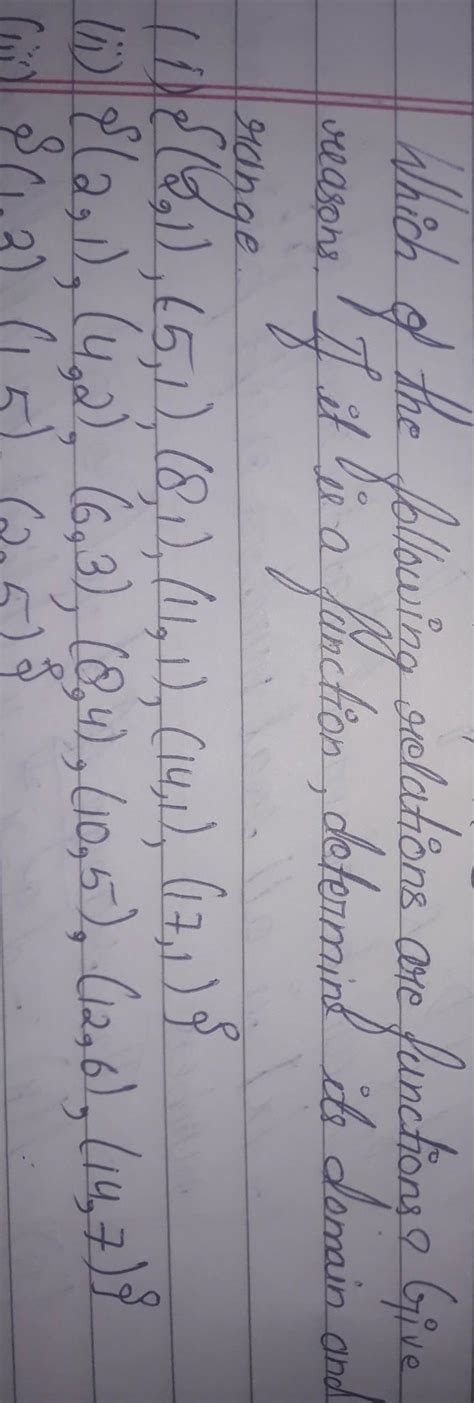 Which of the following relations are functions? Give
reasons. If it is a function, determine its domain and
range.
(i) {(2,1), (5,1), (8,1), (11,1), (14,1), (17,1)}
(ii) {(2,1), (4,2), (6,3), (8,4), (10,5), (12,6), (14,7)}
(iii) {(1,3), (1,5), (2,5)}